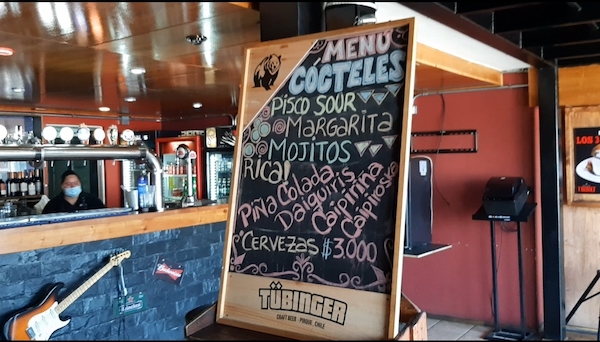 MENÚ
CÓCTELES
PISCO SOUR
MARGARITA
MOJITOS
RICA!
PIÑA COLADA
DAIQUIRIS
CAIPIRIÑA
CAIPIROSKA
CERVEZAS $3.000
TÜBINGER
CRAFT BEER - PIRQUE , CHILE
LOS